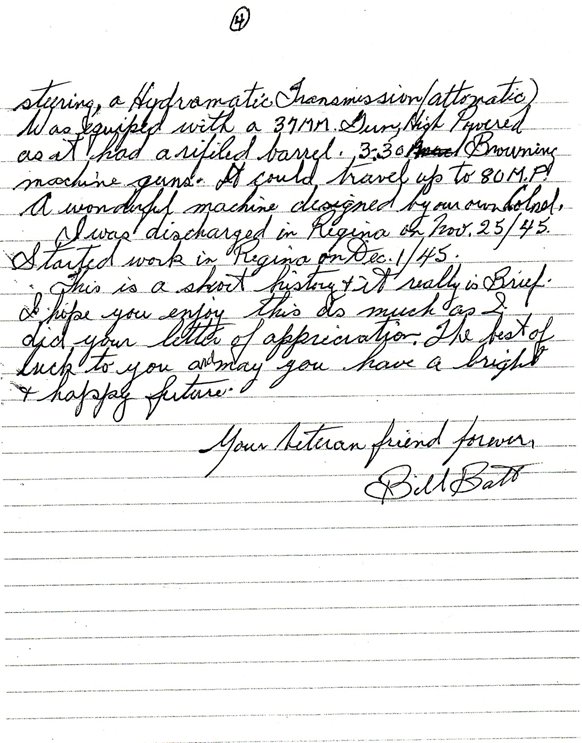 4
steering, a Hydramatic Transmission (attomatic)
Was equiped with a 37MM. Gun, High Powered
as it had a rifiled barrel. 3-30 Browning
machine guns. It could travel up to 80 M.P.
A wonderful machine designed by our own Colnol.
I was discharged in Regina on Nov. 25/45.
Started work in Regina on Dec. 1/45.
This is a short history & it really is Brief.
I hope you enjoy this as much as I
did your letter of appreciation. The best of
luck to you and may you have a bright
& happy future.
Your Veteran friend forever,
Bill Batt